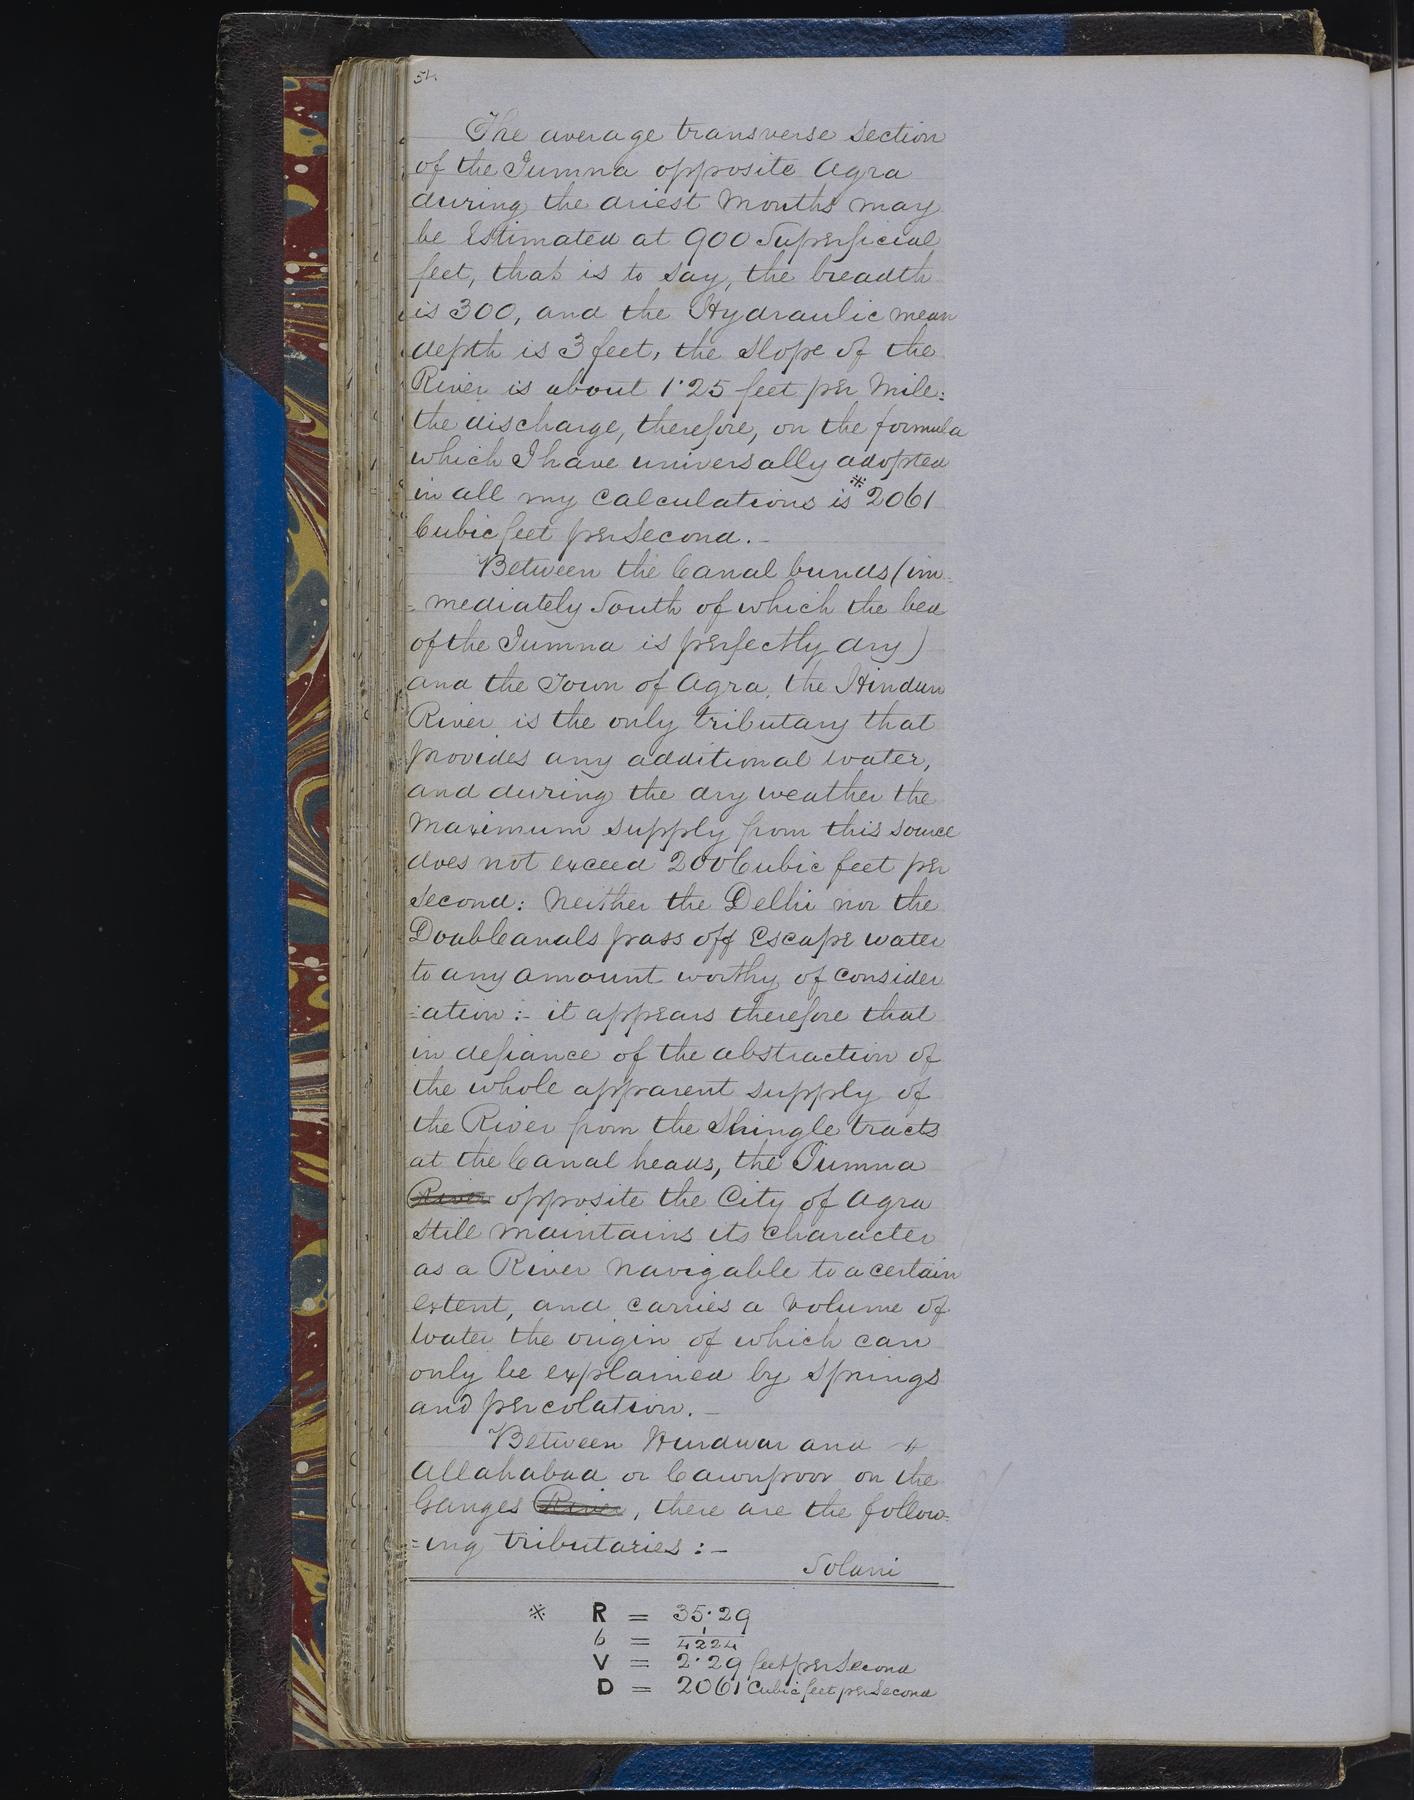 54
The average transverse section
of the Jumna opposite Agra
during the driest Months may
be Estimated at 900 Superficial
feet, that is to say, the breadth
is 300, and the Hydraulic mean
depth is 3 feet, the slope of the
River is about 1·25 feet per Mile:
the discharge, therefore, on the formula
which I have universally adopted
in all my calculations is * 2061
Cubic feet per Second. -
Between the Canal bunds (im-
=mediately South of which the bed
of the Jumna is perfectly dry)
and the Town of Agra, the Hindun
River is the only tributary that
provides any additional water,
and during the dry weather the
Maximum supply from this source
does not exceed 200 Cubic feet per
Second: Neither the Delhi nor the
Doab Canals pass off Escape water
to any amount worthy of consider
=ation :- it appears therefore that
in defiance of the abstraction of
the whole apparent supply of
the River from the Shingle tracts
at the Canal heads, the Jumna
River opposite the City of Agra
still maintains its character
as a River navigable to a certain
extent, and carries a volume of
water the origin of which can
only be explained by springs
and percolation. -
Between Hurdwar and
Allahabad or Cawnpoor on the
Ganges River, there are the follow-
=ing tributaries :-
Solani
* R = 35·29
b = 1/4224
V = 2·29 feet per Second
D = 2061 Cubic feet per Second